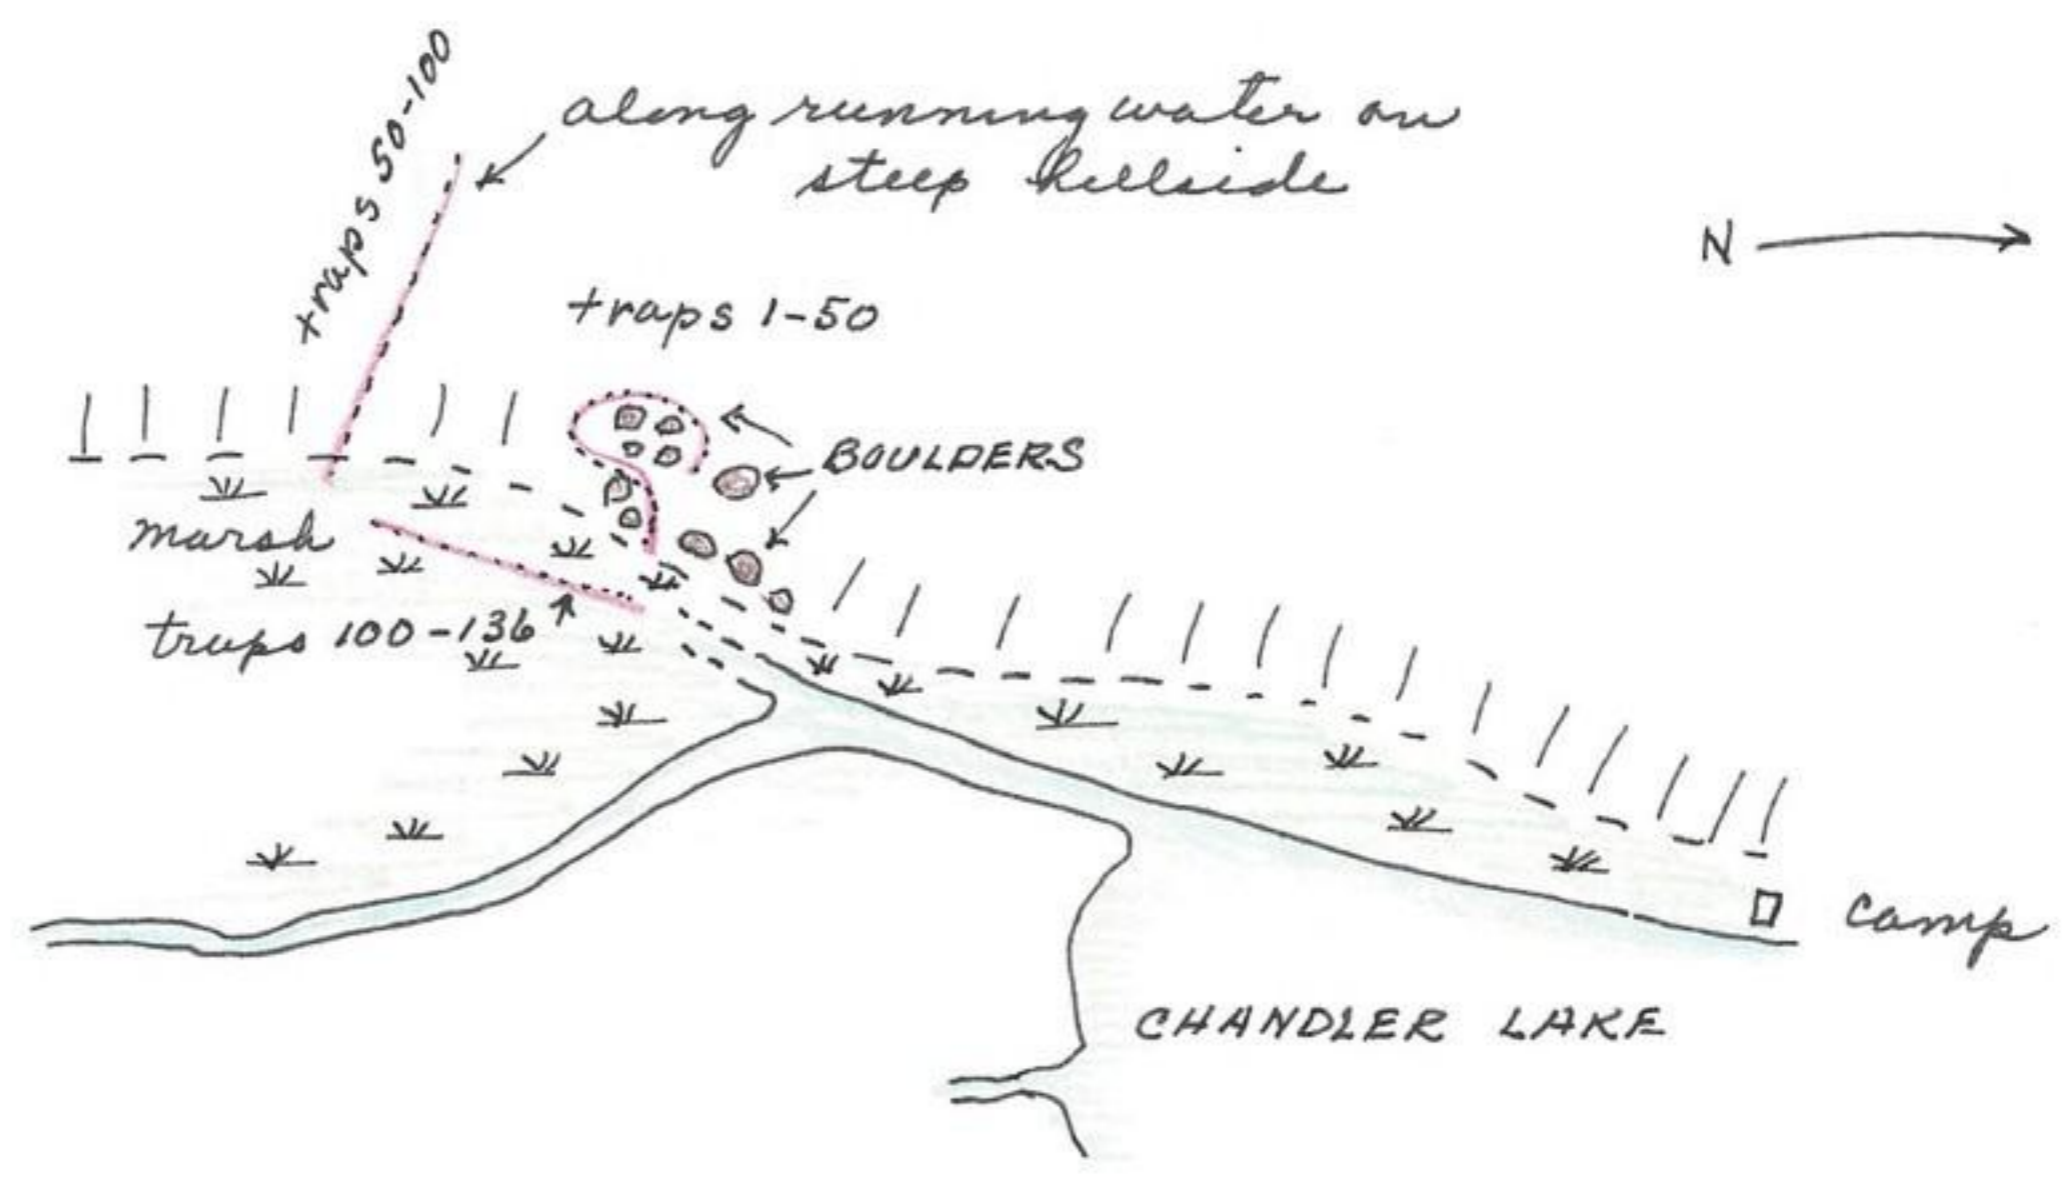 traps 50-100
along running water on
steep hillside
N
traps 1-50
BOULDERS
marsh
traps 100-136
camp
CHANDLER LAKE